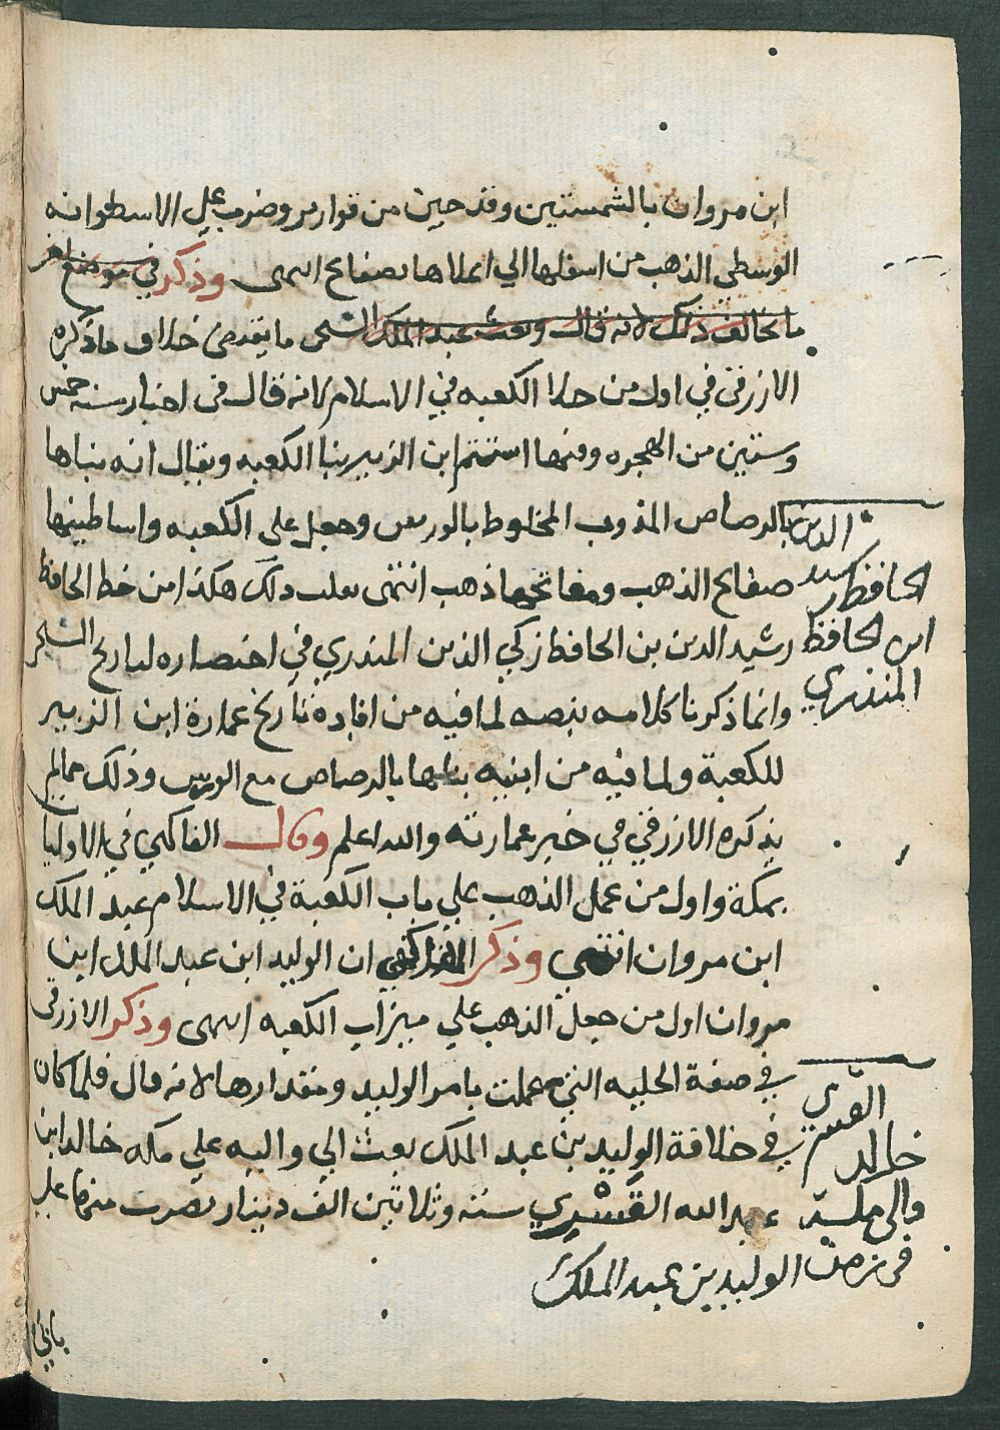 ابن مروان بالشمستين وقدحين من قوارير وضرب علي الاسطوانه
الوسطي الذهب من اسفلها الي اعلاها بصفايح انتهى وذكر في موضع اخر
ما يخالف ذلك لانه قال وبعث عبد الملك انتهى ما يقتضى خلاف ما ذكره
الازرقى في اول من حلا الكعبه في الاسلام لانه قال فى اخبار سنه خمس
وستين من الهجره وفيها استتم ابن الزبير بنا الكعبه ويقال انه بناها
بالرصاص المذوب المخلوط بالورس وجعل على الكعبه واساطينها
صفايح الذهب ومفاتحها ذهب انتهى نقلت ذلك هكذا من خط الحافظ
رشيد الدين بن الحافظ زكي الدين المنذري في اختصاره لتاريخ
وانما ذكرنا كلامه بنصه لما فيه من افادة تاريخ عمارة ابن الزبير
للكعبة ولما فيه من ابنيه بناها بالرصاص مع الورس وذلك مما لم
يذكره الازرقي في خبر عمارته والله اعلم وقال الفاكهي في الاوليا
بمكة واول من عمل الذهب علي باب الكعبة في الاسلام عبد الملك
ابن مروان انتهي وذكر الفاكهي ان الوليد ابن عبد الملك ابن
مروان اول من جعل الذهب علي ميزاب الكعبه انتهى وذكر الازرقى
في صفة الحليه التي عملت بامر الوليد ومقدارها لانه قال فلما كان
في خلافة الوليد بن عبد الملك بعث الي واليه علي مكه خالد ابن
عبد الله القسري سته وثلاثين الف دينار يضرب منها علي
بابي
الحافظ رشيد الدين
ابن الحافظ
المنذري
خالد القسري
والى مكة
فى زمن الوليد بن عبد الملك